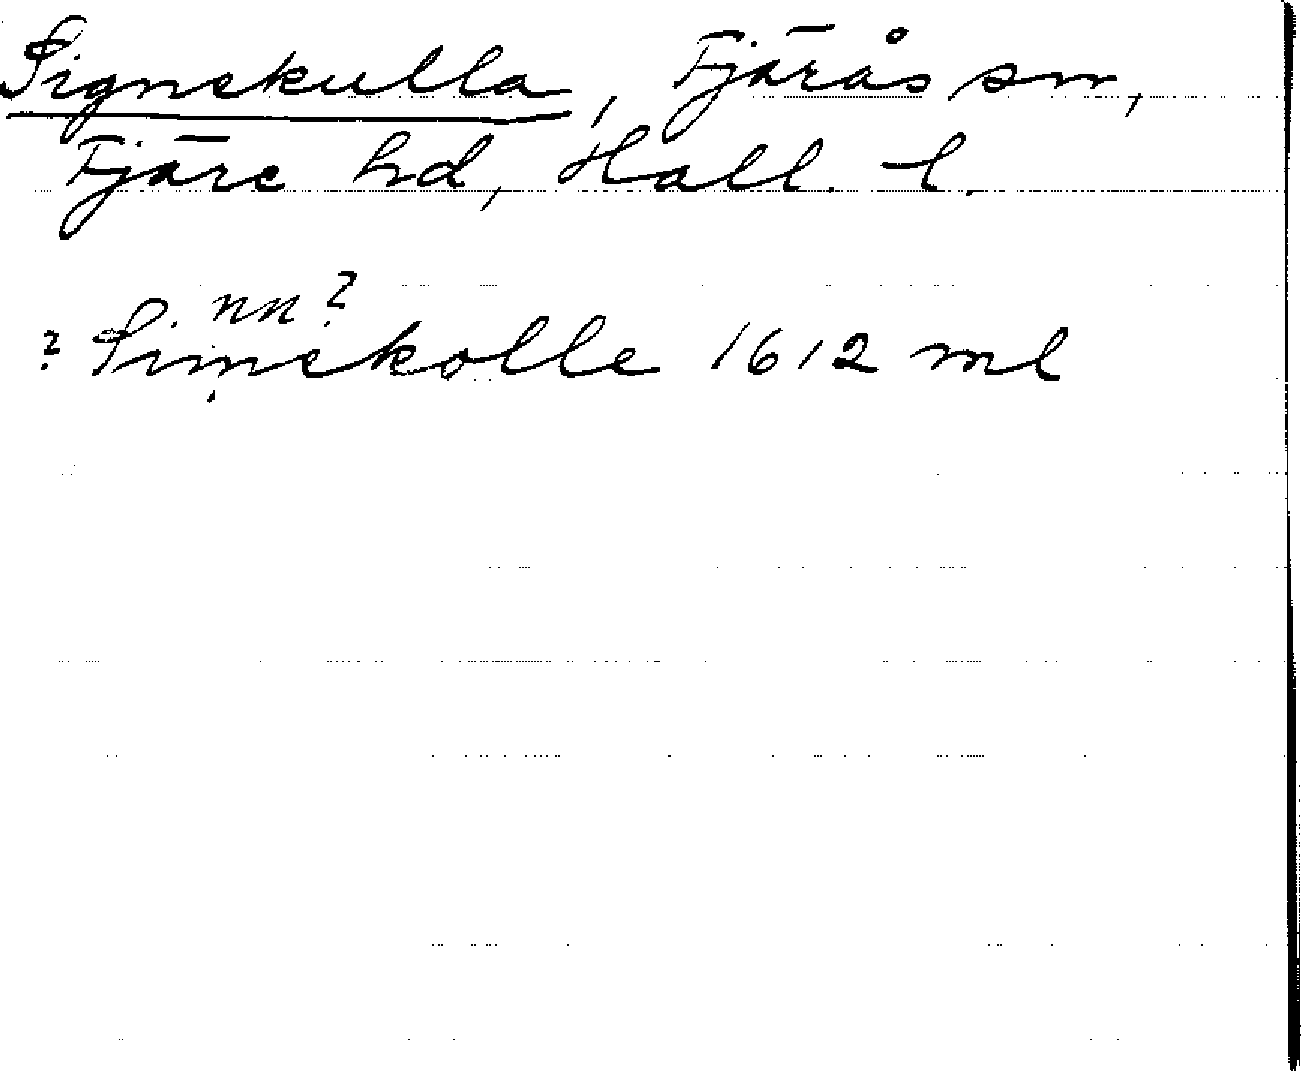 Signekulla, Fjärås sn,
Fjäre hd, Hall. l.
nn?
? Simekolle 1612 ml